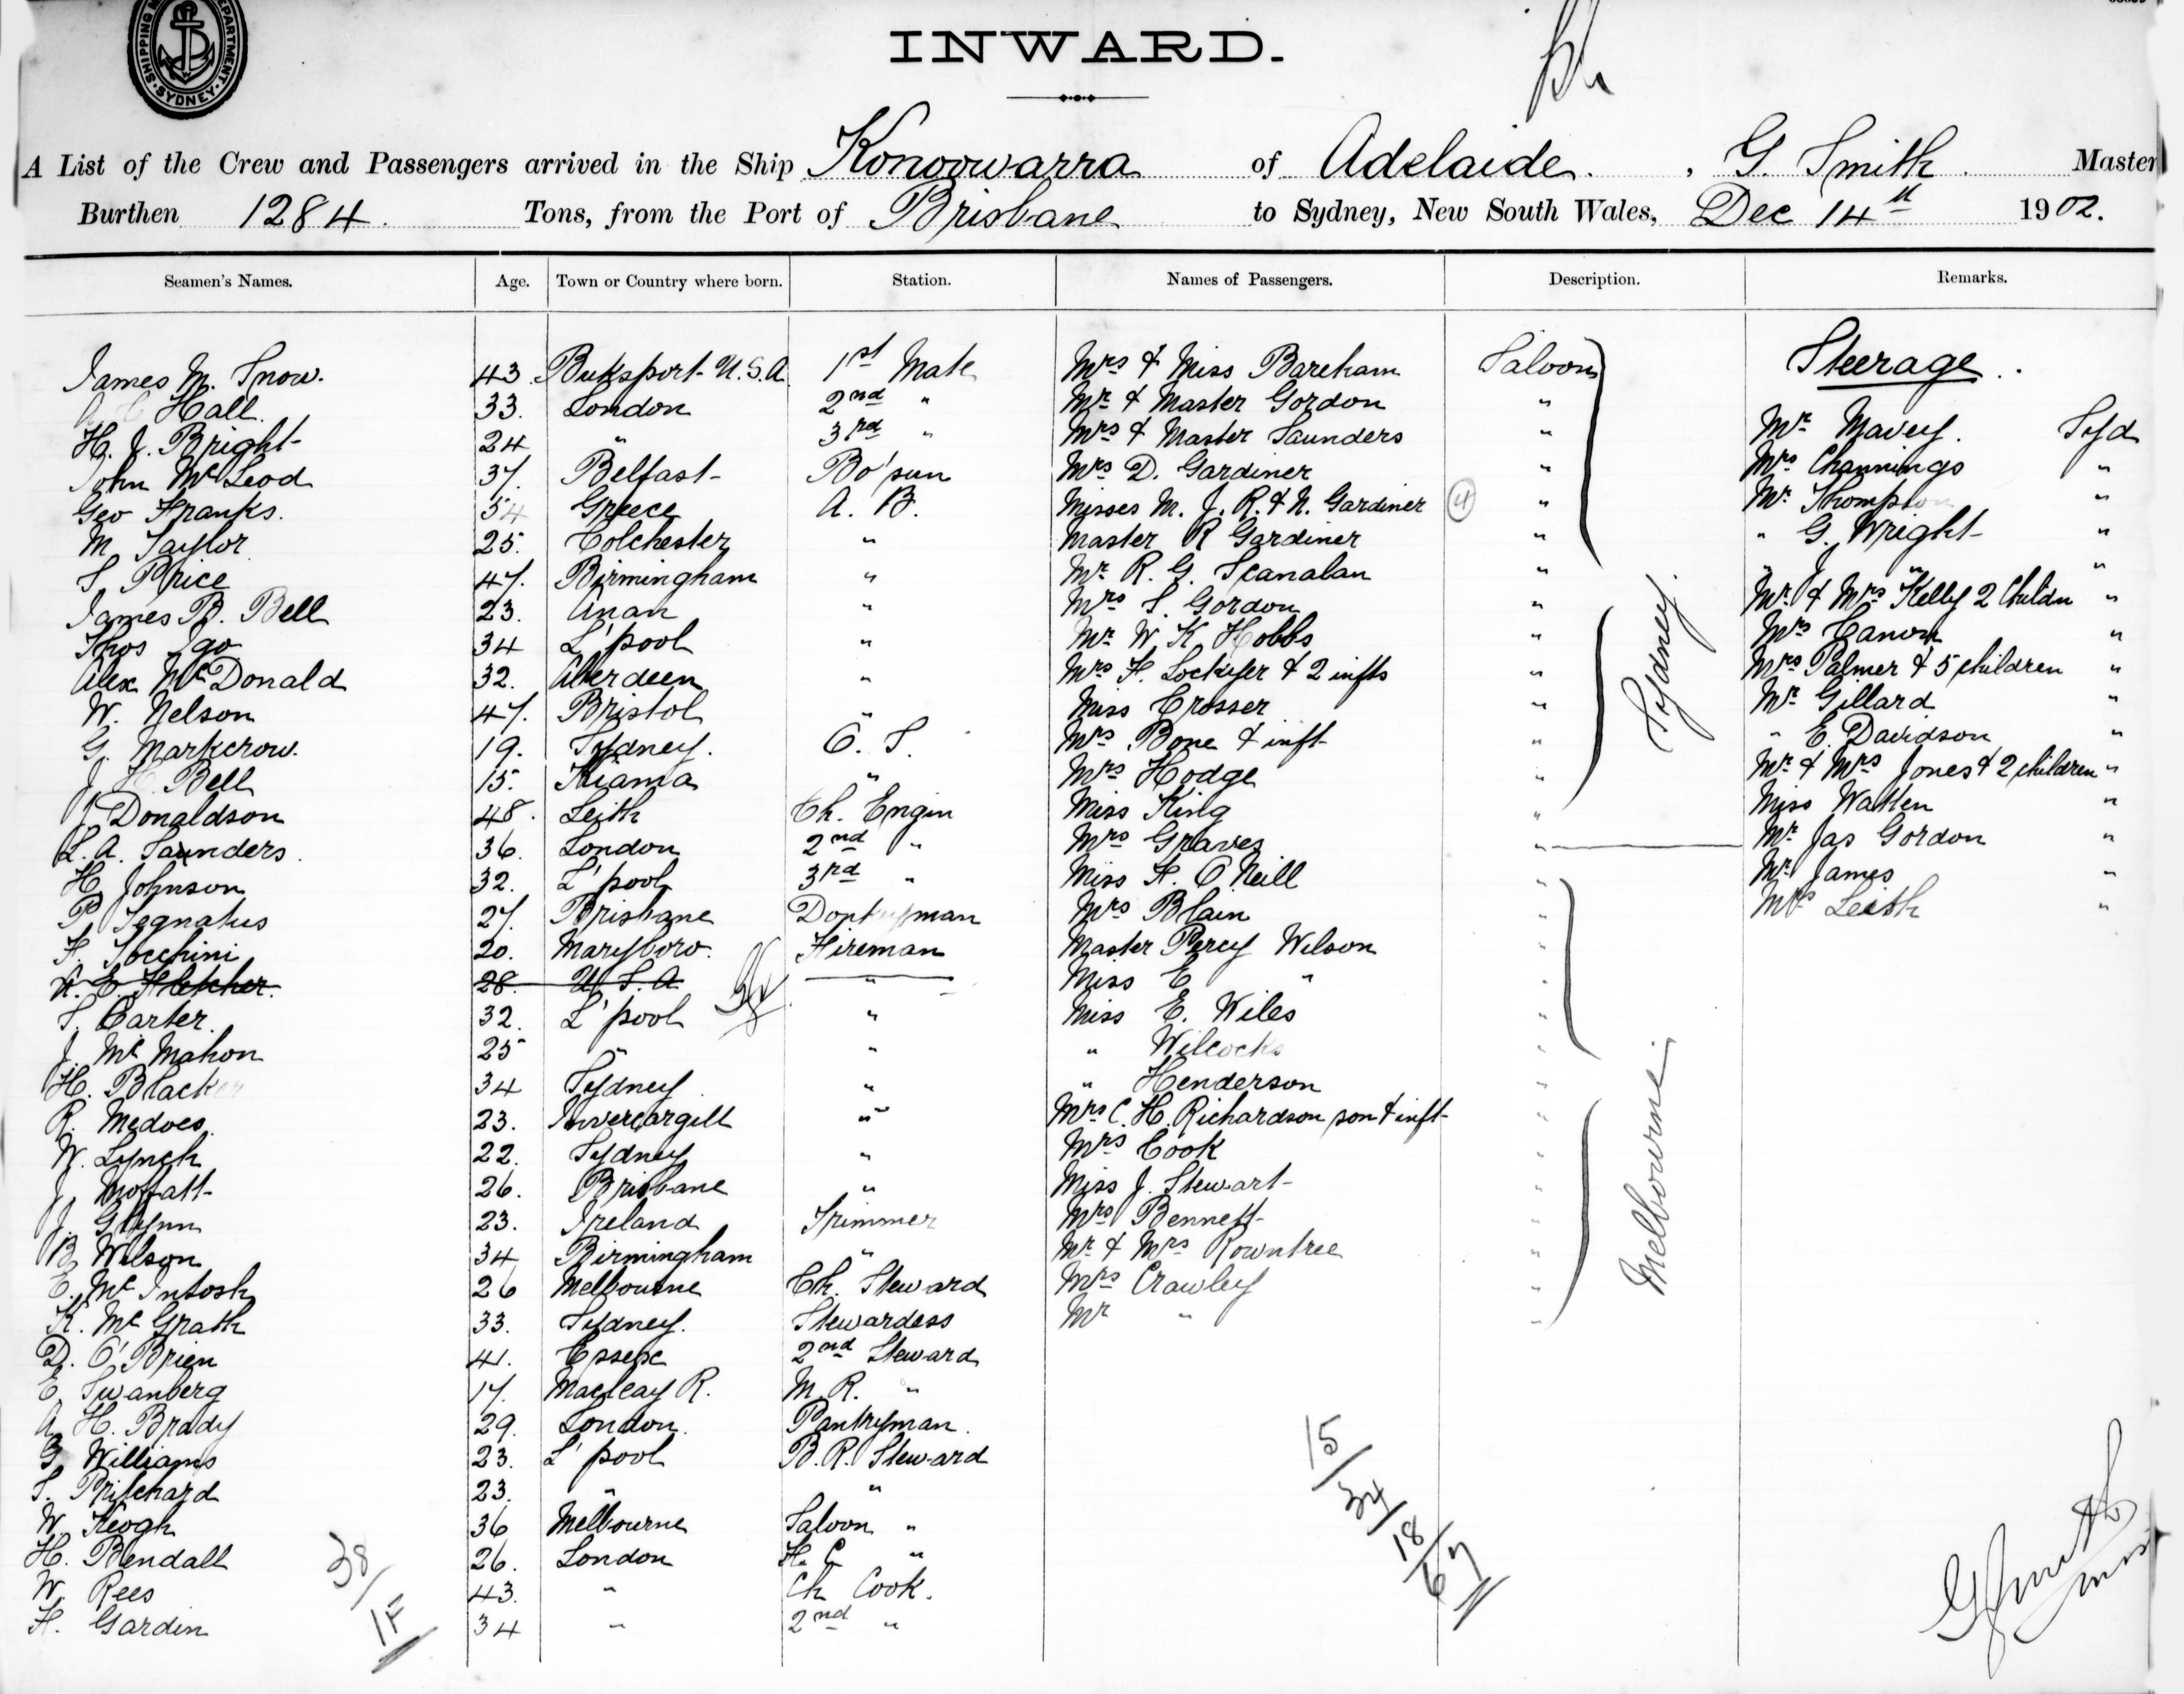 SHIPPING DEPARTMENT SYDNEY
INWARD.
A List of the Crew and Passengers arrived in the Ship Konoowarra of Adelaide, G. Smith Master
Burthen 1284 Tons, from the Port of Brisbane to Sydney, New South Wales, Dec 14th 1902.
Seamen's Names. Age. Town or Country where born. Station. Names of Passengers. Description. Remarks.
James M. Snow. 43 Buksport U.S.A. 1st Mate Mrs & Miss Bareham Saloon Steerage
Hall 33. London 2nd " Mr & Master Gordon "
H. J. Bright 24 " 3rd " Mrs & Master Saunders " Mr Mavey. Syd
John McLeod 37. Belfast Bo'sun Mrs D. Gardiner " Mrs Channings "
Geo Franks. 54 Greece A. B. Misses M. J. R. & N. Gardiner 4 " Mr Thompson "
M Taylor 25. Colchester " Master R Gardiner " " G. Wright "
S. Price 47. Birmingham " Mr R. G. Scanalan " " J " "
James B. Bell 23. Anan " Mrs S. Gordon " Mr & Mrs Kelly 2 Childn "
Thos Igo 34 L'pool " Mr W K Hobbs " Mrs "
Alex McDonald 32. Aberdeen " Mrs F. Lockyer & 2 infts " Mrs Palmer & 5 children "
W. Nelson 47. Bristol " Miss Crosser " Mr Gillard "
G. Markcrow. 19. Sydney. O. S. Mrs Bone & inft " " E. Davidson "
J H Bell 15. Kiama " Mrs Hodge " Mr & Mrs Jones & 2 children "
J. Donaldson 48. Leith Ch. Engin Miss King " Miss Watten "
L. A. Saunders. 36. London 2nd " Mrs Graves " Mr Jas Gordon "
H. Johnson 32. L'pool 3rd " Miss K. O'Neill " Mr James "
P Tegnatus 27. Brisbane Donkeyman Mrs Blain " Mrs Leish "
F. Tocchini 20. Maryboro. Fireman Master Percy Wilson "
E. Fletcher. 28. U. S. A " Miss E " "
S. Carter. 32. L'pool " Miss E. Wiles "
J. McMahon 25 " " " Wilcocks "
H. Blacker 34 Sydney " " Henderson "
R. Medoes. 23. Invercargill " Mrs C. H. Richardson son & inft "
W. Lynch 22. Sydney " Mrs Cook "
J. Moffatt 26. Brisbane " Miss J. Stewart "
J. Glynn 23. Ireland Trimmer Mrs Bennett "
B. Wilson 34 Birmingham " Mr & Mrs Rowntree "
E. McIntosh 26 Melbourne Ch. Steward Mrs Crawley "
K. McGrath 33. Sydney. Stewardess Mr " "
D. O'Brien 41. Essex 2nd Steward
E. Swanberg 17. Macleay R. M. R. "
A. H. Brady 29. London. Pantryman.
G Williams 23. L'pool B. R. Steward
S. Pritchard 23. " "
W. Keogh 36 Melbourne Saloon "
H. Bendall 26. London F. C "
W. Rees 43. " Ch Cook.
H. Gardin 34 " 2nd "
Sydney.
Melbourne.
38/1F
15/34/18/67
G Smith